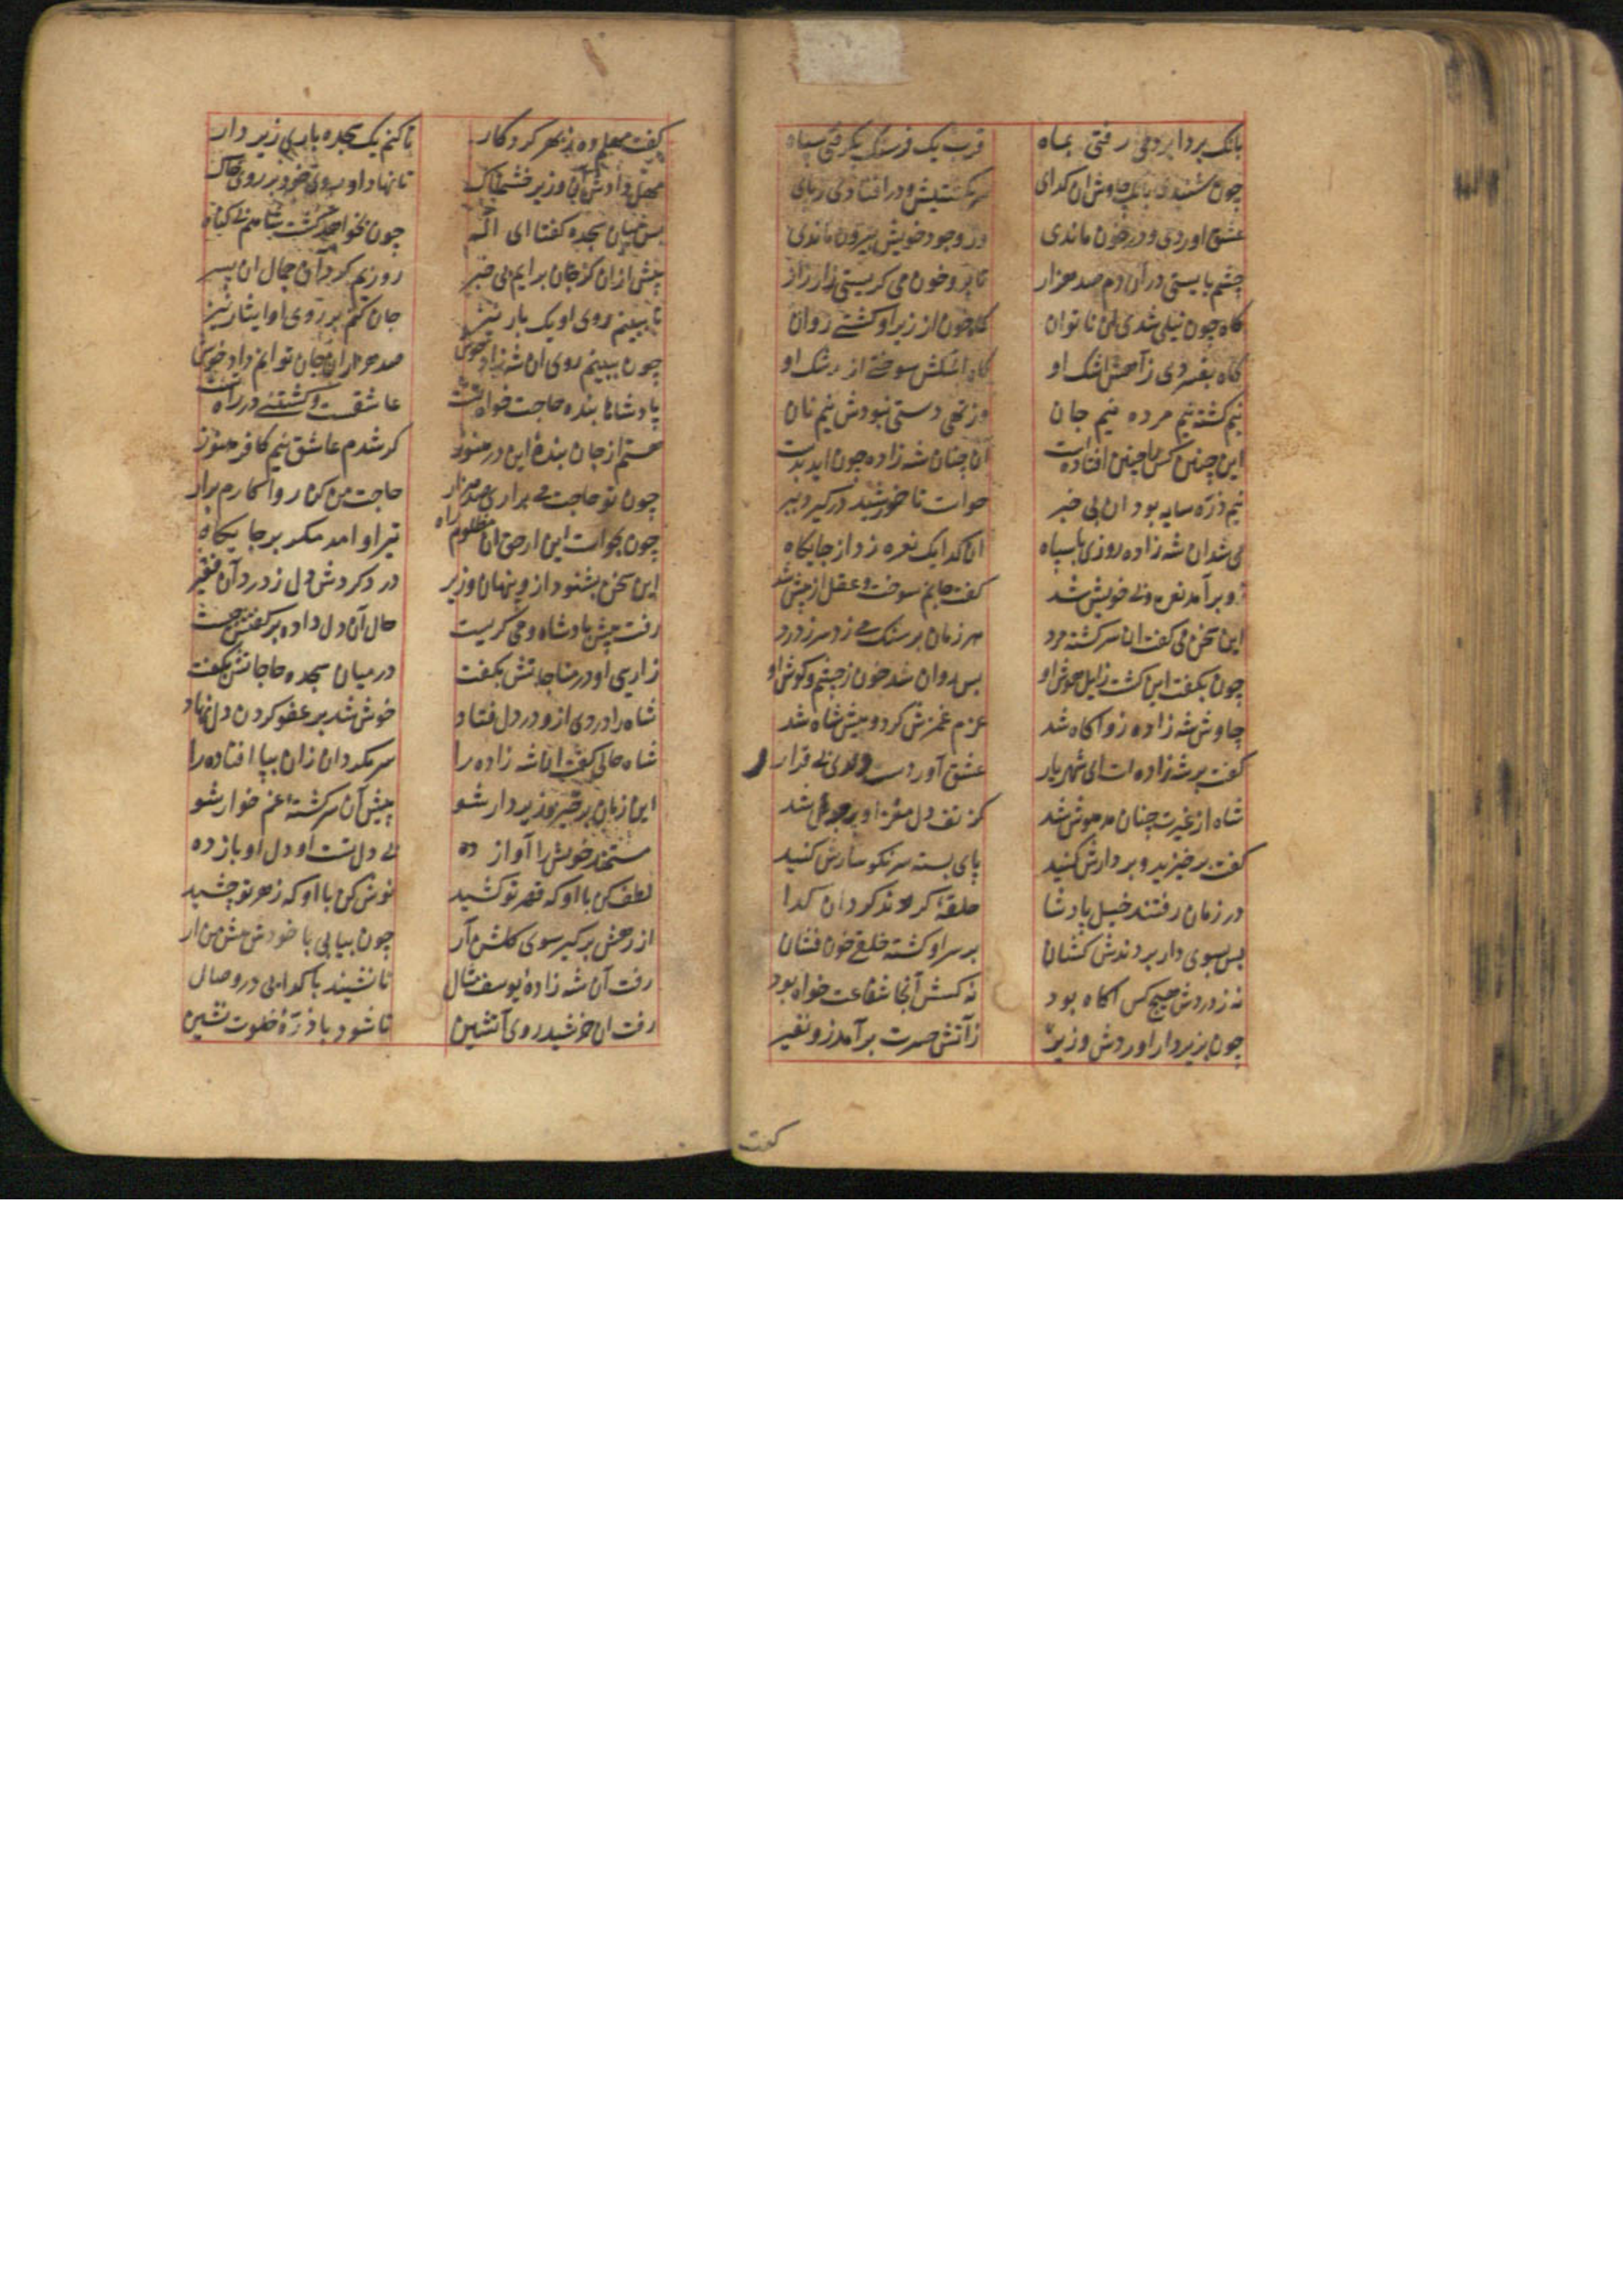 بانک بردابرد می رفتی بماه قرب یک فرسنک بکرفتی سپاه
چون شنیدی بانک چاوش ان کدای سر بکشتیش و در افتادی ز پای
غشی اوردی و در خون ماندی وز وجود خویش بیرون ماندی
چشم بایستی در ان دم صد هزار تا برو خون می کریستی زار زار
کاه چون نیلی شدی ان ناتوان کاه خون از زیر او کشتی روان
کاه بفسردی ز آهش اشک او کاه اشکش سوختی از رشک او
نیم کشته نیم مرده نیم جان وز تهی دستی نبودش نیم نان
این چنین کس را چنین افتاده است آن چنان شه زاده چون اید بدست
نیم ذره سایه بود ان بی خبر خواست تا خورشید در کیرد ببر
می شد ان شه زاده روزی با سپاه ان کدا یک نعره زد از جایکاه
زو بر آمد نعره وبی خویش شد کفت جانم سوخت و عقل از پیش شد
این سخن می کفت ان سرکشته مرد هر زمان بر سنک می زد سر ز درد
چون بکفت این کشت زایل هوش او بس روان شد خون ز چشم و کوش او
چاوش شه زاده زو اکاه شد عزم غمزش کرد و پیش شاه شد
کفت بر شه زاده ات ای شهریار عشق آوردست رندی بی قرار
شاه از غیرت چنان مدهوش شد کز تف دل مغز او بر جوش شد
کفت بر خیزید و بر دارش کنید پای بسته سرنکوسارش کنید
در زمان رفتند خیل پادشا حلقهٔ کردند کرد ان کدا
بس بسوی دار بردندش کشان بر سر او کشته خلقی خون فشان
نه ز دردش هیچ کس اکاه بود نه کسش آنجا شفاعت خواه بود
چون بزیر دار اوردش وزیر ز آتش حسرت بر آمد زو نفیر
کفت
کفت مهلم ده ز بهر کردکار تا کنم یک سجده باری زیر دار
مهل دادش آن وزیر خشمناک تا نهاد او روی خود بر روی خاک
بس میان سجده کفتا ای اله چون بخواهد کشت شاهم بی کناه
پیش از ان کز جان برایم بی خبر روزیم کردان جمال ان پسر
تا ببینم روی او یک بار نیز جان کنم بر روی او ایثار نیز
چون ببینم روی ان شه زاد خوش صد هزاران جان توانم داد خوش
پادشاها بنده حاجت خواه تست عاشقست و کشتهٔ در راه تست
هستم از جان بندهٔ این در هنوز کر شدم عاشق نیم کافر هنوز
چون تو حاجت می براری صد هزار حاجت من کن روا کارم برار
چون بخواست این ان مظلوم راه تیر او امد مکر بر جایکاه
این سخن بشنود ازو پنهان وزیر درد کردش دل ز درد آن فقیر
رفت پیش پادشاه و می کریست حال آن دل داده بر کفتش که چیست
زاری او در مناجاتش بکفت در میان سجده حاجاتش بکفت
شاه را دردی ازو در دل فتاد خوش شد بر عفو کردن دل نهاد
شاه حالی کفت ان شه زاده را سر مکردان زان بپا افتاده را
این زمان بر خیز و زیر دار شو پیش آن سرکشتهٔ غم خوار شو
مستمند خویش را آواز ده بی دل تست او دل او باز ده
لطف کن با او که قهر تو کشید نوش کن با او که زهر تو چشید
از رهش بر کیر سوی کلشن آر چون بیایی با خودش پیش من ار
رفت آن شه زادهٔ یوسف مثال تا نشیند با کدایی در وصال
رفت ان خرشید روی آتشین تا شود با ذرهٔ خلوت نشین